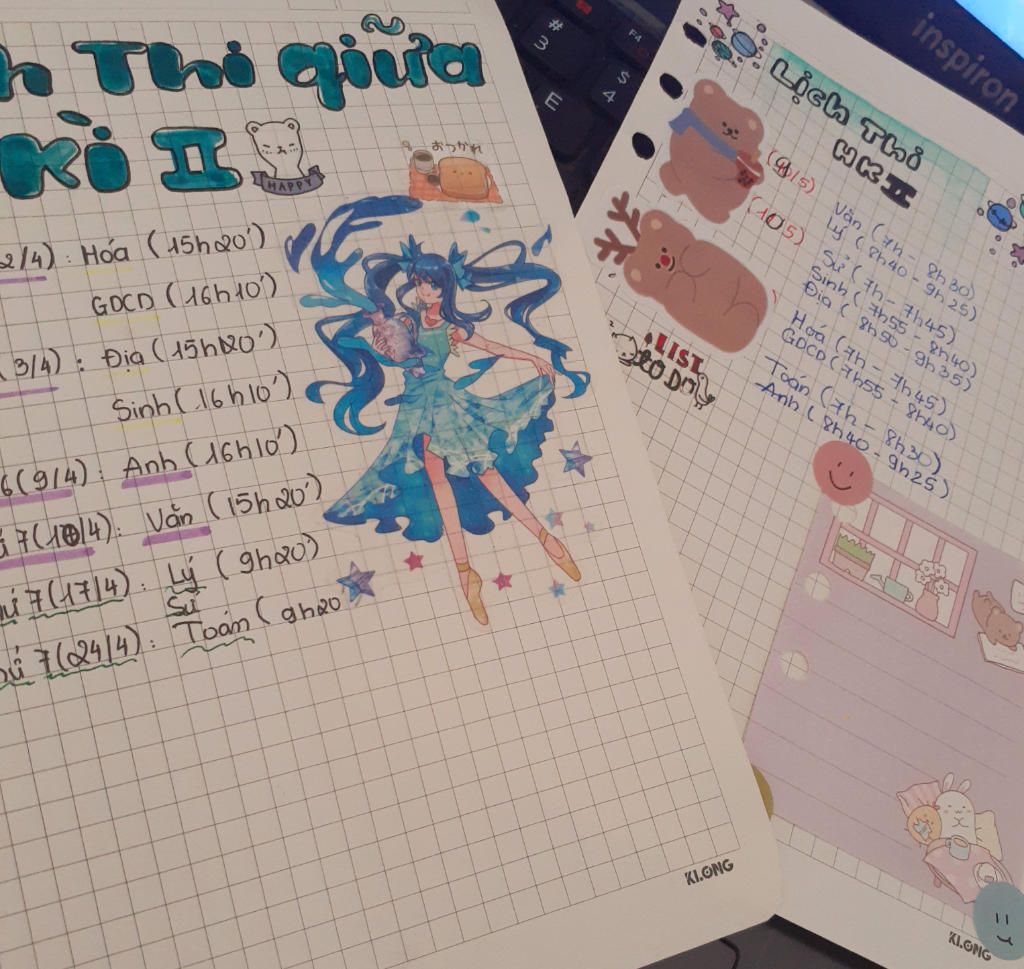 h Thi giữa
kì II
HAPPY
おつかれ
2/4): Hóa (15h20')
GDCD (16h10')
(3/4): Địa (15h20')
Sinh (16h10')
6(9/4): Anh (16h10')
7(10/4): Văn (15h20')
7(17/4): Lý (9h20')
Sử
7(24/4): Toán (9h20
KLONG
#
3
$
4
E
F4
inspiron
Lịch Thi
HK II
(9/5)
(10/5)
Văn (7h - 8h30)
Lý (8h40 - 9h25)
Sử (7h - 7h45)
Sinh (7h55 - 8h40)
Địa (8h50 - 9h35)
Hoá (7h - 7h45)
GDCD (7h55 - 8h40)
Toán (7h - 8h30)
Anh (8h40 - 9h25)
LIST
TO DO
KLONG